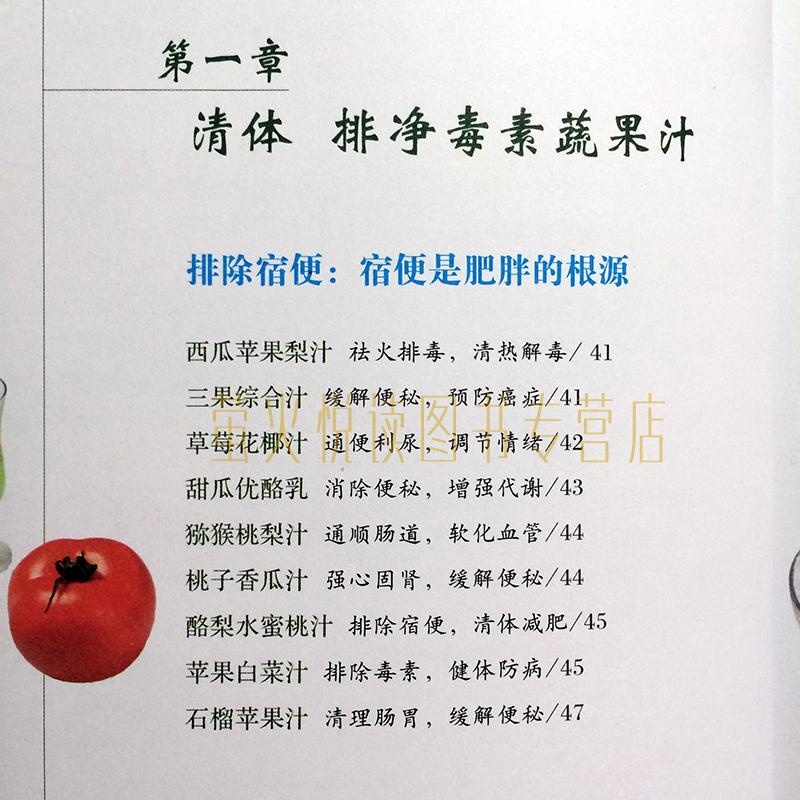 第一章
清体 排净毒素蔬果汁
排除宿便：宿便是肥胖的根源
西瓜苹果梨汁 祛火排毒，清热解毒/41
三果综合汁 缓解便秘，预防癌症/41
萤火悦读图书专营店
草莓花椰汁 通便利尿，调节情绪/42
甜瓜优酪乳 消除便秘，增强代谢/43
猕猴桃梨汁 通顺肠道，软化血管/44
桃子香瓜汁 强心固肾，缓解便秘/44
酪梨水蜜桃汁 排除宿便，清体减肥/45
苹果白菜汁 排除毒素，健体防病/45
石榴苹果汁 清理肠胃，缓解便秘/47